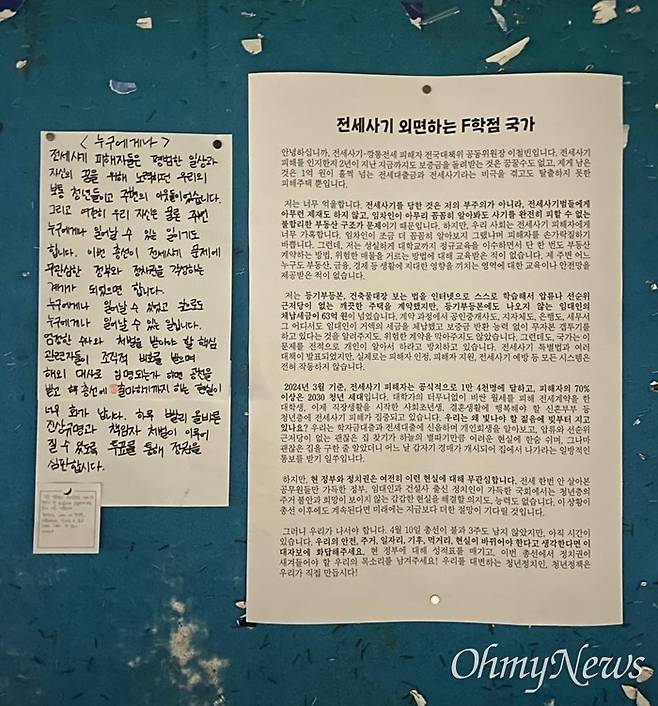 < 누구에게나 >
전세사기 피해자들은 평범한 일상과
자신의 꿈을 위해 노력하던 우리의
보통 청년들이고 주변의 이웃들이었습니다.
그리고 여전히 우리 자신은 물론 주변
누구에게나 일어날 수 있는 일이기도
합니다. 이번 총선이 전세사기 문제에
무관심한 정부와 정치권을 걱정하는
계기가 되었으면 합니다.
누구에게나 일어날 수 있었고 앞으로도
누구에게나 일어날 수 있는 일입니다.
엄정한 수사와 처벌을 받아야 할 핵심
관련자들이 조직적 비호를 받으며
해외 대사로 임명되는가 하면 공천을
받고 총선에 출마하기까지 하는 현실이
너무 화가 납니다. 하루 빨리 올바른
진상규명과 책임자 처벌이 이루어
질 수 있도록 투표를 통해 정권을
심판합시다.
전세사기 외면하는 F학점 국가
안녕하십니까, 전세사기·깡통전세 피해자 전국대책위 공동위원장 이철빈입니다. 전세사기
피해를 인지한지 2년이 지난 지금까지도 보증금을 돌려받는 것은 꿈꿀수도 없고, 제게 남은
것은 1억 원이 훌쩍 넘는 전세대출금과 전세사기라는 비극을 겪고도 탈출하지 못한
피해주택 뿐입니다.
저는 너무 억울합니다. 전세사기를 당한 것은 저의 부주의가 아니라, 전세사기범들에게
아무런 제재도 하지 않고, 임차인이 아무리 꼼꼼히 알아봐도 사기를 완전히 피할 수 없는
불합리한 부동산 구조가 문제이기 때문입니다. 하지만, 우리 사회는 전세사기 피해자에게
너무 가혹합니다. 임차인이 조금 더 꼼꼼히 알아보지 그랬냐며 피해자를 손가락질하기
바쁩니다. 그런데, 저는 성실하게 대학교까지 정규교육을 이수하면서 단 한 번도 부동산
계약하는 방법, 위험한 매물을 거르는 방법에 대해 교육받은 적이 없습니다. 제 주변 어느
누구도 부동산, 금융, 경제 등 생활에 지대한 영향을 끼치는 영역에 대한 교육이나 안전망을
제공받은 적이 없습니다.
저는 등기부등본, 건축물대장 보는 법을 인터넷으로 스스로 학습해서 압류나 선순위
근저당이 없는 깨끗한 주택을 계약했지만, 등기부등본에도 나오지 않는 임대인의
체납세금이 63억 원이 넘었습니다. 계약 과정에서 공인중개사도, 지자체도, 은행도, 세무서도
그 어디서도 임대인이 거액의 세금을 체납했고 보증금 반환 능력 없이 무자본 갭투기를
하고 있다는 것을 알려주지도, 위험한 계약을 막아주지도 않았습니다. 그런데도, 국가는 이
문제를 전적으로 개인이 알아서 하라고 방치하고 있습니다. 전세사기 특별법과 여러
대책이 발표되었지만, 실제로는 피해자 인정, 피해자 지원, 전세사기 예방 등 모든 시스템은
전혀 작동하지 않습니다.
2024년 3월 기준, 전세사기 피해자는 공식적으로 1만 4천명에 달하고, 피해자의 70%
이상은 2030 청년 세대입니다. 대학가의 터무니없이 비싼 월세를 피해 전세계약을 한
대학생, 이제 직장생활을 시작한 사회초년생, 결혼생활에 행복해야 할 신혼부부 등
청년층에 전세사기 피해가 집중되고 있습니다. 우리는 왜 빛나야 할 젊음에 빚부터 지고
있나요? 우리는 학자금대출과 전세대출에 신음하며 개인회생을 알아보고, 압류와 선순위
근저당이 없는 괜찮은 집 찾기가 하늘의 별따기만큼 어려운 현실에 한숨 쉬며, 그나마
괜찮은 집을 구한 줄 알았더니 어느 날 갑자기 경매가 개시되어 집에서 나가라는 일방적인
통보를 받기 일쑤입니다.
하지만, 현 정부와 정치권은 여전히 이런 현실에 대해 무관심합니다. 전세 한번 안 살아본
공무원들만 가득한 정부, 임대인과 건설사 출신 정치인이 가득한 국회에서는 청년층의
주거 불안과 희망이 보이지 않는 갑갑한 현실을 해결할 의지도, 능력도 없습니다. 이 상황이
총선 이후에도 계속된다면 미래에는 지금보다 더한 절망이 기다릴 것입니다.
그러니 우리가 나서야 합니다. 4월 10일 총선이 불과 3주도 남지 않았지만, 아직 시간이
있습니다. 우리의 안전, 주거, 일자리, 기후, 먹거리, 현실이 바뀌어야 한다고 생각한다면 이
대자보에 화답해주세요. 현 정부에 대해 성적표를 매기고, 이번 총선에서 정치권이
새겨들어야 할 우리의 목소리를 남겨주세요! 우리를 대변하는 청년정치인, 청년정책은
우리가 직접 만듭시다!
OhmyNews